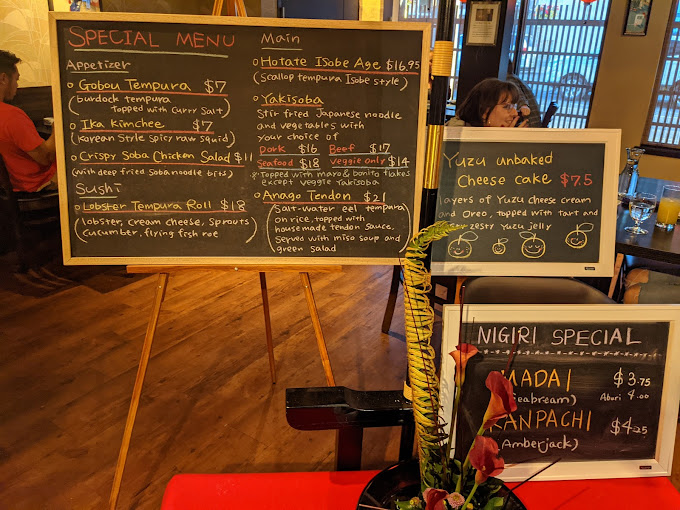 SPECIAL MENU
Appetizer
Gobou Tempura $7
(burdock tempura
topped with curry salt)
Ika kimchee $7
(Korean style spicy raw squid)
Crispy Soba Chicken Salad $11
(with deep fried soba noodle bits)
Sushi
Lobster Tempura Roll $18
(lobster, cream cheese, sprouts
cucumber, flying fish roe)
Main
Hotate Isobe Age $16.95
(scallop tempura Isobe style)
Yakisoba
Stir fried Japanese noodle
and vegetables with
your choice of
Pork $16 Beef $17
Seafood $18 Veggie only $14
* Topped with mayo & bonito flakes
except veggie Yakisoba
Anago Tendon $21
(Salt-water eel tempura
on rice, topped with
housemade tendon sauce.
Served with miso soup and
green salad)
Yuzu unbaked
Cheese cake $7.5
layers of Yuzu cheese cream
and Oreo, topped with tart and
zesty Yuzu jelly
NIGIRI SPECIAL
MADAI $3.75
(Seabream) Aburi 4.00
KANPACHI $4.25
(Amberjack)